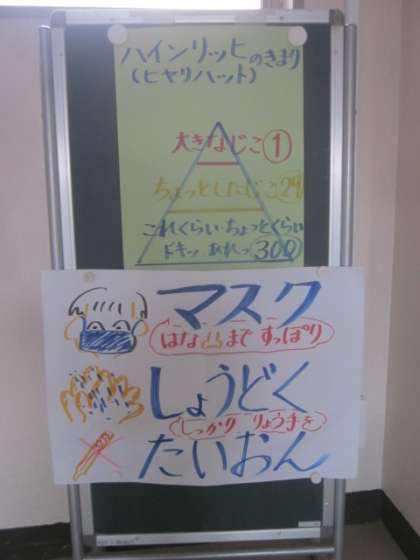 ハインリッヒのきまり
(ヒヤリハット)
大きなじこ 1
ちょっとしたじこ 29
これくらい・ちょっとくらい
ドキッ、あれっ 300
マスク
はなまで すっぽり
しょうどく
しっかり りょうてを
たいおん